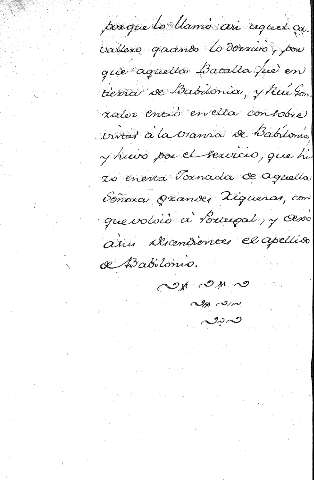 porque lo llamó asi aquel Ca-
vallero quando lo derrivó, por
que aquella Batalla fué en
tierra de Babilonia, y Rui Gon-
zalez entró en ella con sobre
vistas à la de Babilonia
y huvo por el servicio, que hi
zo en esta Jornada de aquella
Señora grandes riquezas, con
que volvió à Portugal, y dexó
à sus Descendientes el apellido
de Babilonio.